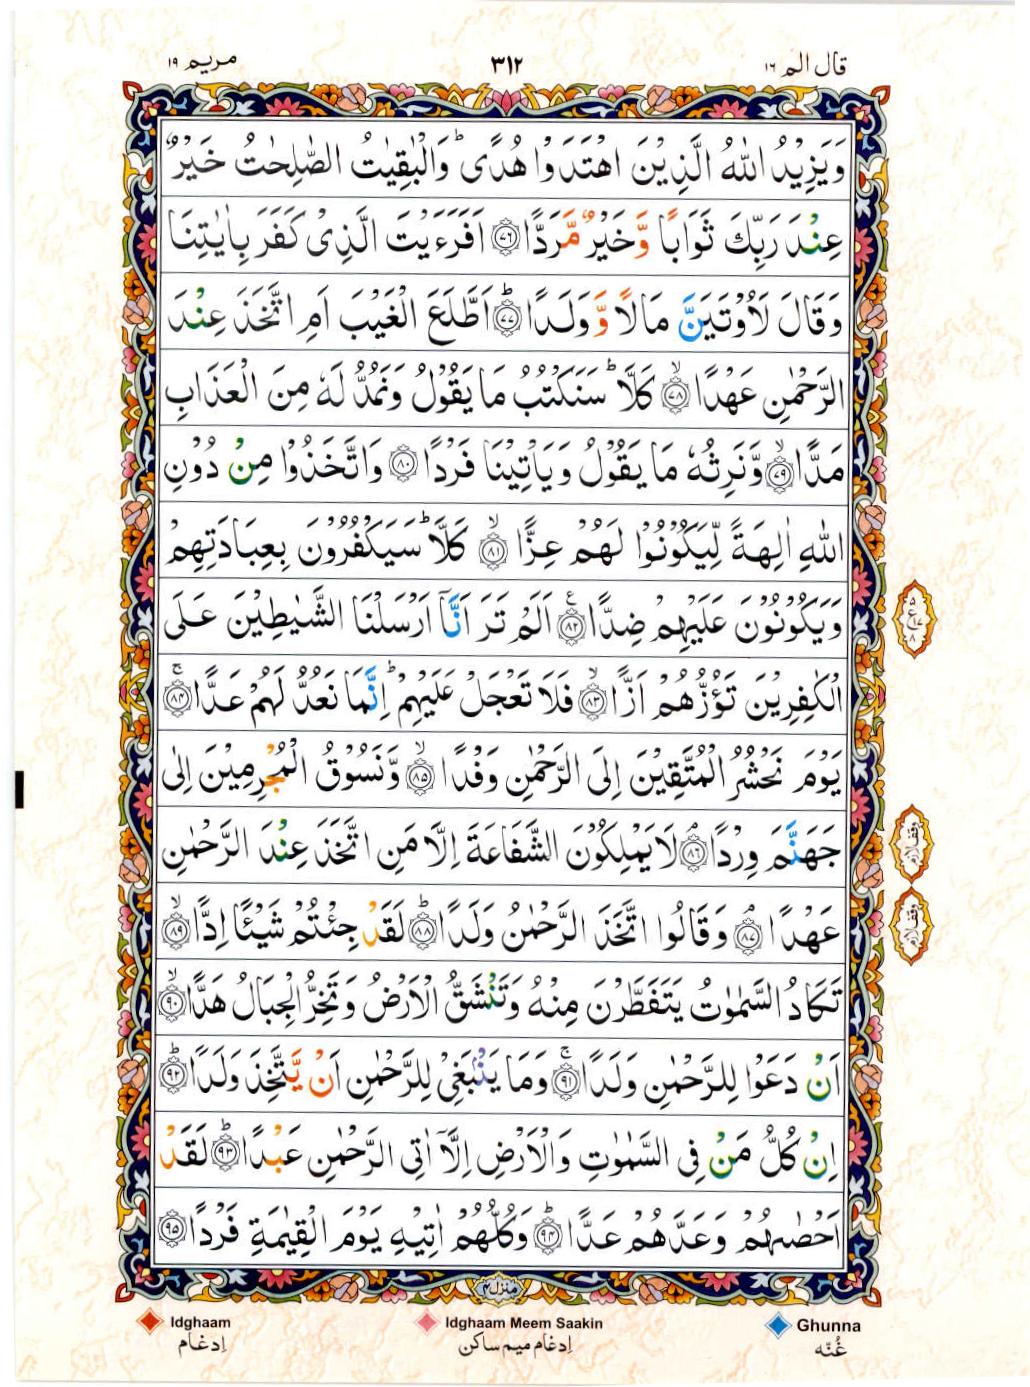 قال الم ١٦
٣١٢
مريم ١٩
وَيَزِيْدُ اللّٰهُ الَّذِيْنَ اهْتَدَوْا هُدًى ؕ وَالْبٰقِيٰتُ الصّٰلِحٰتُ خَيْرٌ
عِنْدَ رَبِّكَ ثَوَابًا وَّخَيْرٌ مَّرَدًّا ۝۷۶ اَفَرَءَيْتَ الَّذِىْ كَفَرَ بِاٰيٰتِنَا
وَقَالَ لَاُوْتَيَنَّ مَالًا وَّ وَلَدًا ؕ۝۷۷ اَطَّلَعَ الْغَيْبَ اَمِ اتَّخَذَ عِنْدَ
الرَّحْمٰنِ عَهْدًا ۙ۝۷۸ كَلَّا ؕ سَنَكْتُبُ مَا يَقُوْلُ وَنَمُدُّ لَهٗ مِنَ الْعَذَابِ
مَدًّا ۙ۝۷۹ وَّنَرِثُهٗ مَا يَقُوْلُ وَيَاْتِيْنَا فَرْدًا ۝۸۰ وَاتَّخَذُوْا مِنْ دُوْنِ
اللّٰهِ اٰلِهَةً لِّيَكُوْنُوْا لَهُمْ عِزًّا ۙ۝۸۱ كَلَّا ؕ سَيَكْفُرُوْنَ بِعِبَادَتِهِمْ
وَيَكُوْنُوْنَ عَلَيْهِمْ ضِدًّا ۝۸۲ اَلَمْ تَرَ اَنَّاۤ اَرْسَلْنَا الشَّيٰطِيْنَ عَلَى
الْكٰفِرِيْنَ تَؤُزُّهُمْ اَزًّا ۙ۝۸۳ فَلَا تَعْجَلْ عَلَيْهِمْ ؕ اِنَّمَا نَعُدُّ لَهُمْ عَدًّا ۚ۝۸۴
يَوْمَ نَحْشُرُ الْمُتَّقِيْنَ اِلَى الرَّحْمٰنِ وَفْدًا ۙ۝۸۵ وَّنَسُوْقُ الْمُجْرِمِيْنَ اِلٰى
جَهَنَّمَ وِرْدًا ۘ۝۸۶ لَا يَمْلِكُوْنَ الشَّفَاعَةَ اِلَّا مَنِ اتَّخَذَ عِنْدَ الرَّحْمٰنِ
وقف لازم
عَهْدًا ۘ۝۸۷ وَقَالُوا اتَّخَذَ الرَّحْمٰنُ وَلَدًا ؕ۝۸۸ لَقَدْ جِئْتُمْ شَيْئًا اِدًّا ۙ۝۸۹
وقف لازم
تَكَادُ السَّمٰوٰتُ يَتَفَطَّرْنَ مِنْهُ وَتَنْشَقُّ الْاَرْضُ وَتَخِرُّ الْجِبَالُ هَدًّا ۙ۝۹۰
اَنْ دَعَوْا لِلرَّحْمٰنِ وَلَدًا ۚ۝۹۱ وَمَا يَنْۢبَغِىْ لِلرَّحْمٰنِ اَنْ يَّتَّخِذَ وَلَدًا ؕ۝۹۲
اِنْ كُلُّ مَنْ فِى السَّمٰوٰتِ وَالْاَرْضِ اِلَّاۤ اٰتِى الرَّحْمٰنِ عَبْدًا ؕ۝۹۳ لَقَدْ
اَحْصٰىهُمْ وَعَدَّهُمْ عَدًّا ؕ۝۹۴ وَكُلُّهُمْ اٰتِيْهِ يَوْمَ الْقِيٰمَةِ فَرْدًا ۝۹۵
منزل ۴
Idghaam
Idghaam Meem Saakin
Ghunna
اِدغام
اِدغام میم ساکن
غُنّہ